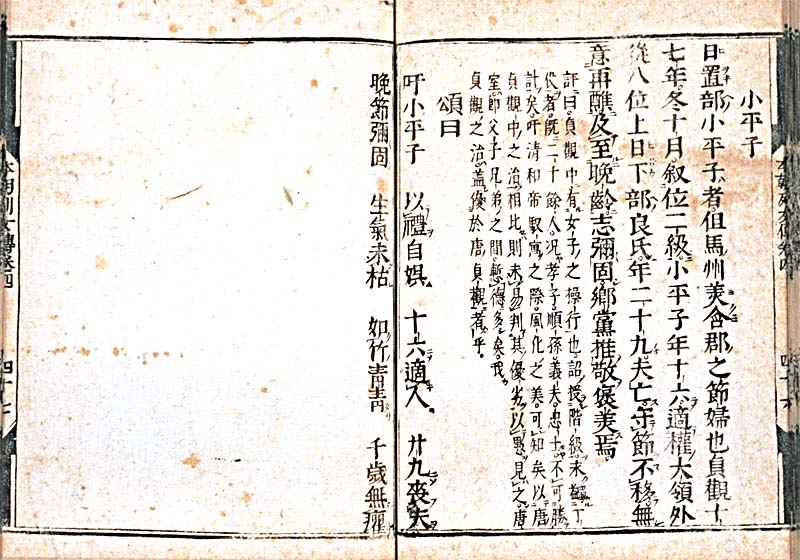 小平子
日置部小平子者但馬州美含郡之節婦也貞觀十
七年冬十月叙位二級小平子年十六適權大領外
從八位上日下部良氏年二十九夫亡守節不移無
意再醮及至晩齡志彌固鄉黨推敬褒美焉
評曰貞觀中有女子之操行也詔授階級未
代者既二十餘人况孝子順孫義夫忠士不可勝
計矣吁清和帝馭寓之際風化之美可知矣以唐
貞觀中之治相比則未易判其優劣以愚見之唐
室即父子兄弟之間慙德多矣我
貞觀之治蓋優於唐貞觀者乎
頌曰
吁小平子 以禮自娯 十六適人 廿九喪夫
晩節彌固 生氣未枯 如竹青青 千歲無癯
本朝列女傳卷四
四十七